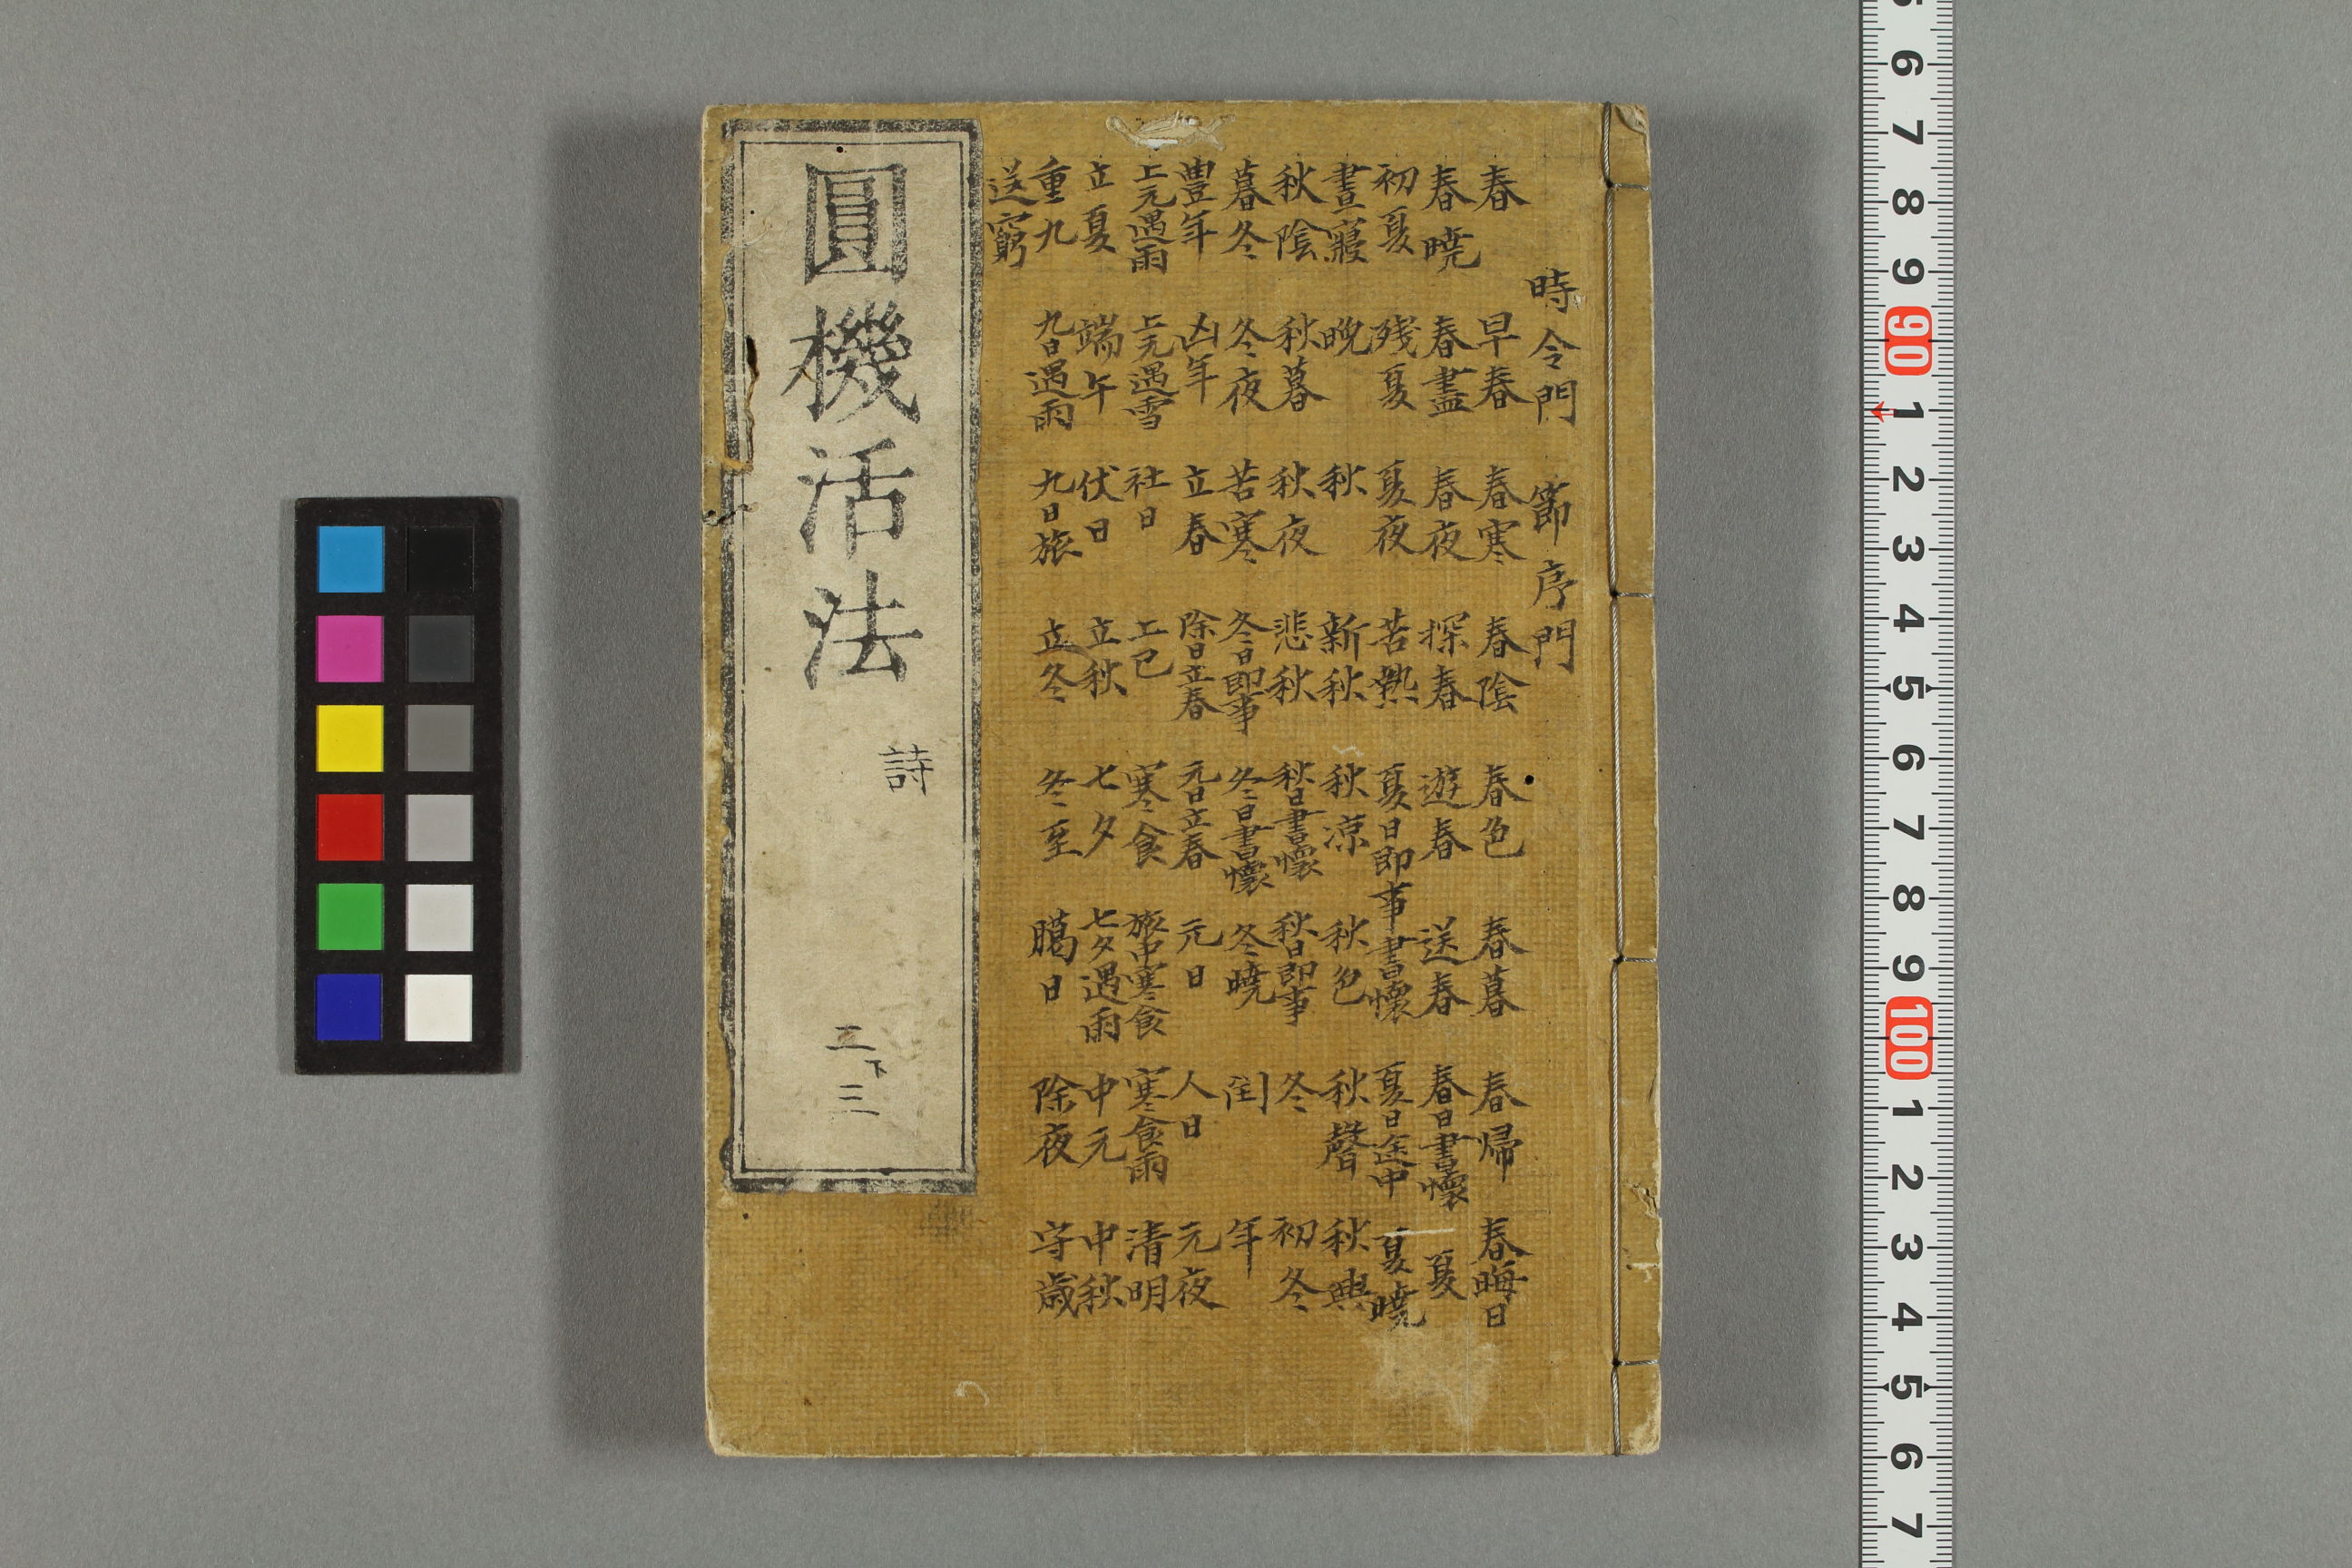 時令門 節序門
春 早春 春寒 春陰 春色 春暮 春帰 春晦日
春曉 春盡 春夜 探春 遊春 送春 春日書懷 夏
初夏 残夏 夏夜 苦熱 夏日即事 書懷 夏日途中 夏曉
晝寢 晩 秋 新秋 秋凉 秋色 秋聲 秋興
秋陰 秋暮 秋夜 悲秋 秋日書懷 秋日即事 冬 初冬
暮冬 冬夜 苦寒 冬日即事 冬日書懷 冬曉 閏 年
豊年 凶年 立春 除日立春 元日立春 元日 人日 元夜
上元遇雨 上元遇雪 社日 上巳 寒食 旅中寒食 寒食雨 清明
立夏 端午 伏日 立秋 七夕 七夕遇雨 中元 中秋
重九 九日遇雨 九日旅 立冬 冬至 臈日 除夜 守歳
送窮
圓機活法 詩 二下 三
6 7 8 9 90 1 2 3 4 5 6 7 8 9 100 1 2 3 4 5 6 7